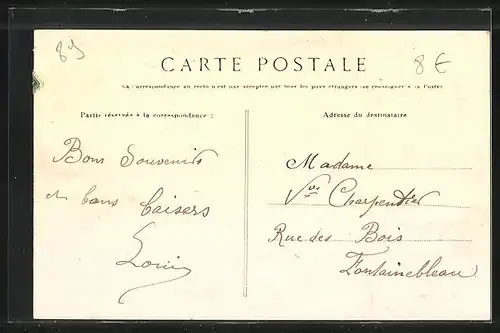 89
8€
CARTE POSTALE
La Correspondance au recto n'est pas acceptée par tous les pays étrangers (se renseigner à la Poste)
Partie réservée à la correspondance :
Adresse du destinataire
Bons Souvenirs
et bons baisers
Louis
Madame
Vve Charpentier
Rue des Bois
Fontainebleau